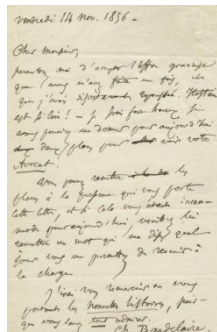 vendredi 14 nov. 1856 -
Cher Monsieur,
permettez moi d'accepter l'offre gracieuse
que vous m'avez faite un soir, dès
que j'aurais
est si loin! - Je serai fort heureux si
vous pouviez me donner pour aujourd'hui
deux places pour voir votre
Avocat.
Vous pouvez remettre
places à la personne qui vous porte
cette lettre, et si cela vous était incom-
mode pour aujourd'hui, veuillez lui
remettre un mot qui me dise quel
jour vous me permettez de revenir à
la charge.
J'irai vous remercier en vous
portant les nouvelles histoires, puis-
que vous tout
Ch. Baudelaire.